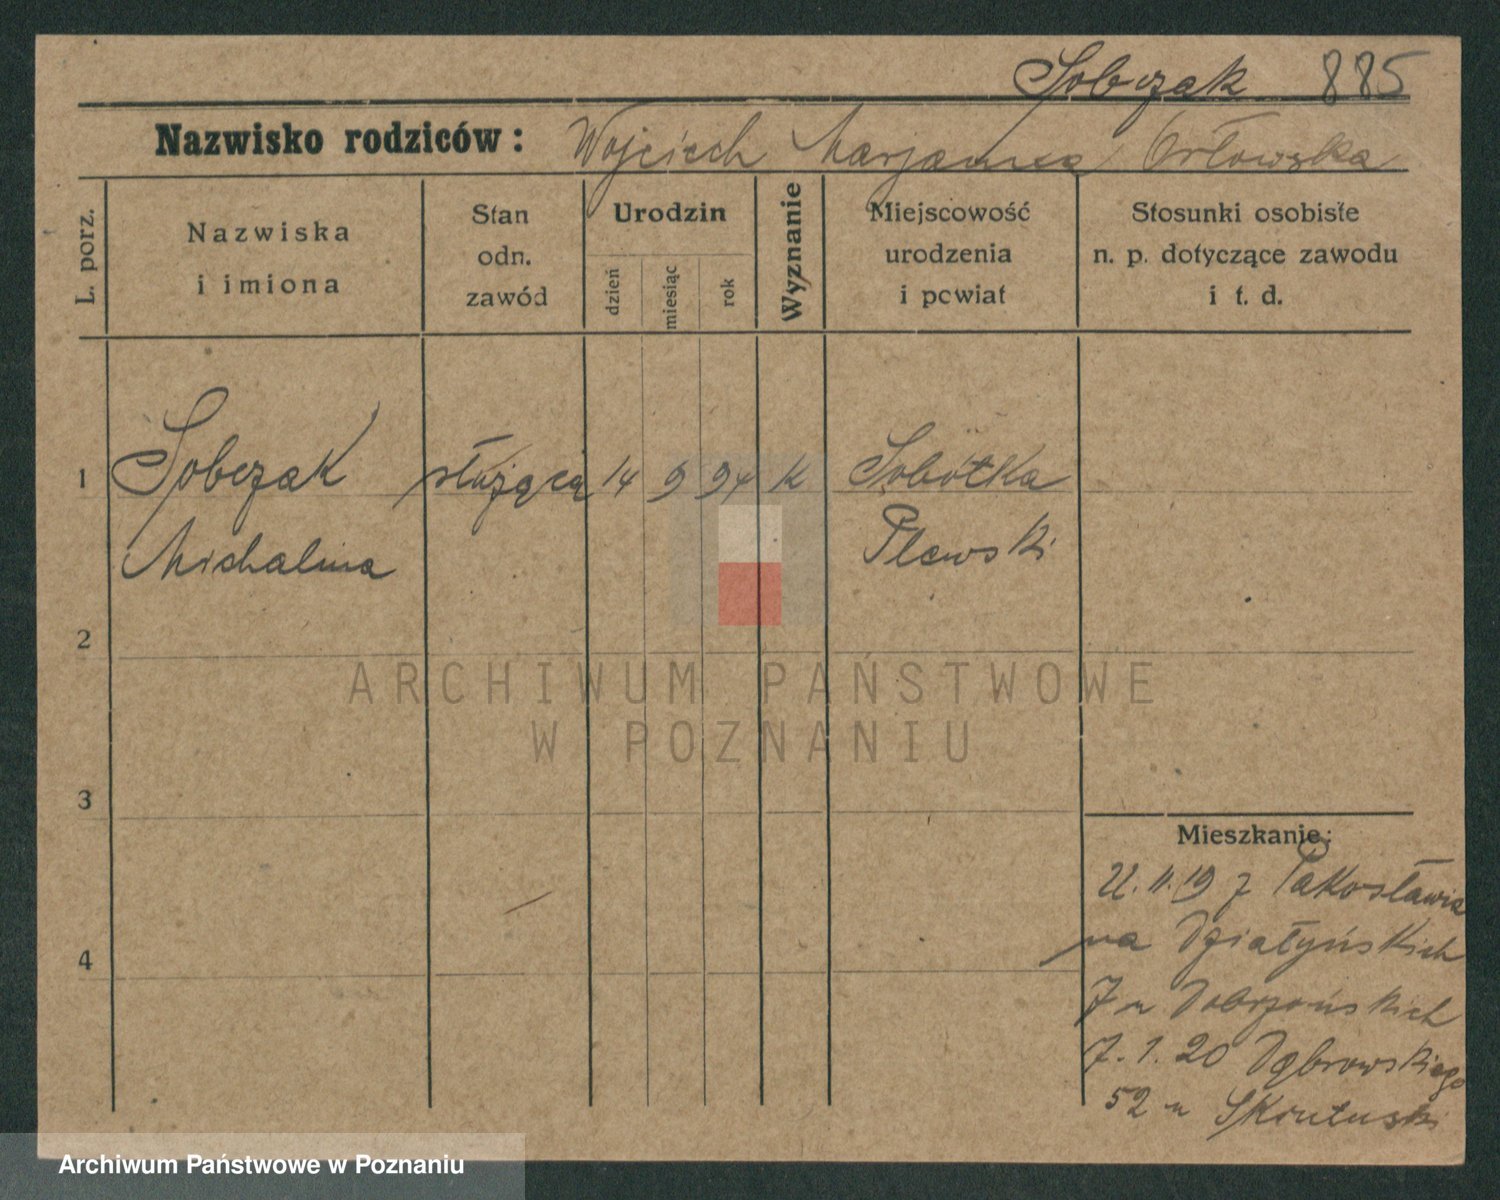 Sobczak 885
Nazwisko rodziców: Wojciech Marjanna Orłowska
L. porz.
Nazwiska i imiona
Stan odn. zawód
Urodzin
dzień
miesiąc
rok
Wyznanie
Miejscowość urodzenia i powiat
Stosunki osobiste n. p. dotyczące zawodu i t. d.
1 Sobczak służąca 14 9 94 K Sobótka
Michalina Plewski
2
3
4
Mieszkanie:
22.11.19 z Pakosławia
na Działyńskich
7 u Dobrzańskich
7.1.20 Dąbrowskiego
52 u
ARCHIWUM PAŃSTWOWE
W POZNANIU
Archiwum Państwowe w Poznaniu